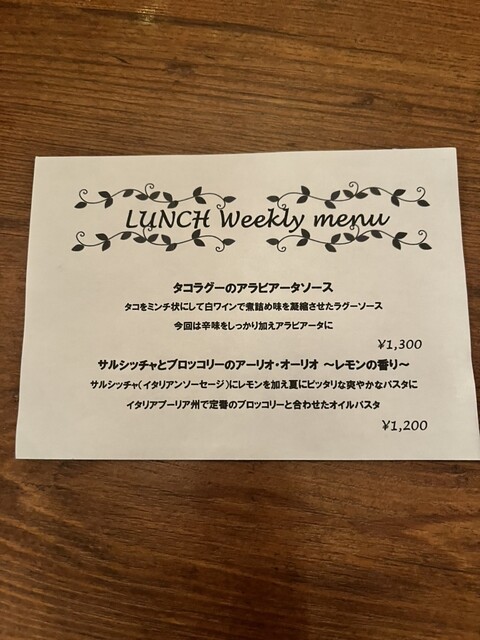 LUNCH Weekly menu
タコラグーのアラビアータソース
タコをミンチ状にして白ワインで煮詰め味を凝縮させたラグーソース
今回は辛味をしっかり加えアラビアータに
¥1,300
サルシッチャとブロッコリーのアーリオ・オーリオ ～レモンの香り～
サルシッチャ(イタリアンソーセージ)にレモンを加え夏にピッタリな爽やかなパスタに
イタリアプーリア州で定番のブロッコリーと合わせたオイルパスタ
¥1,200